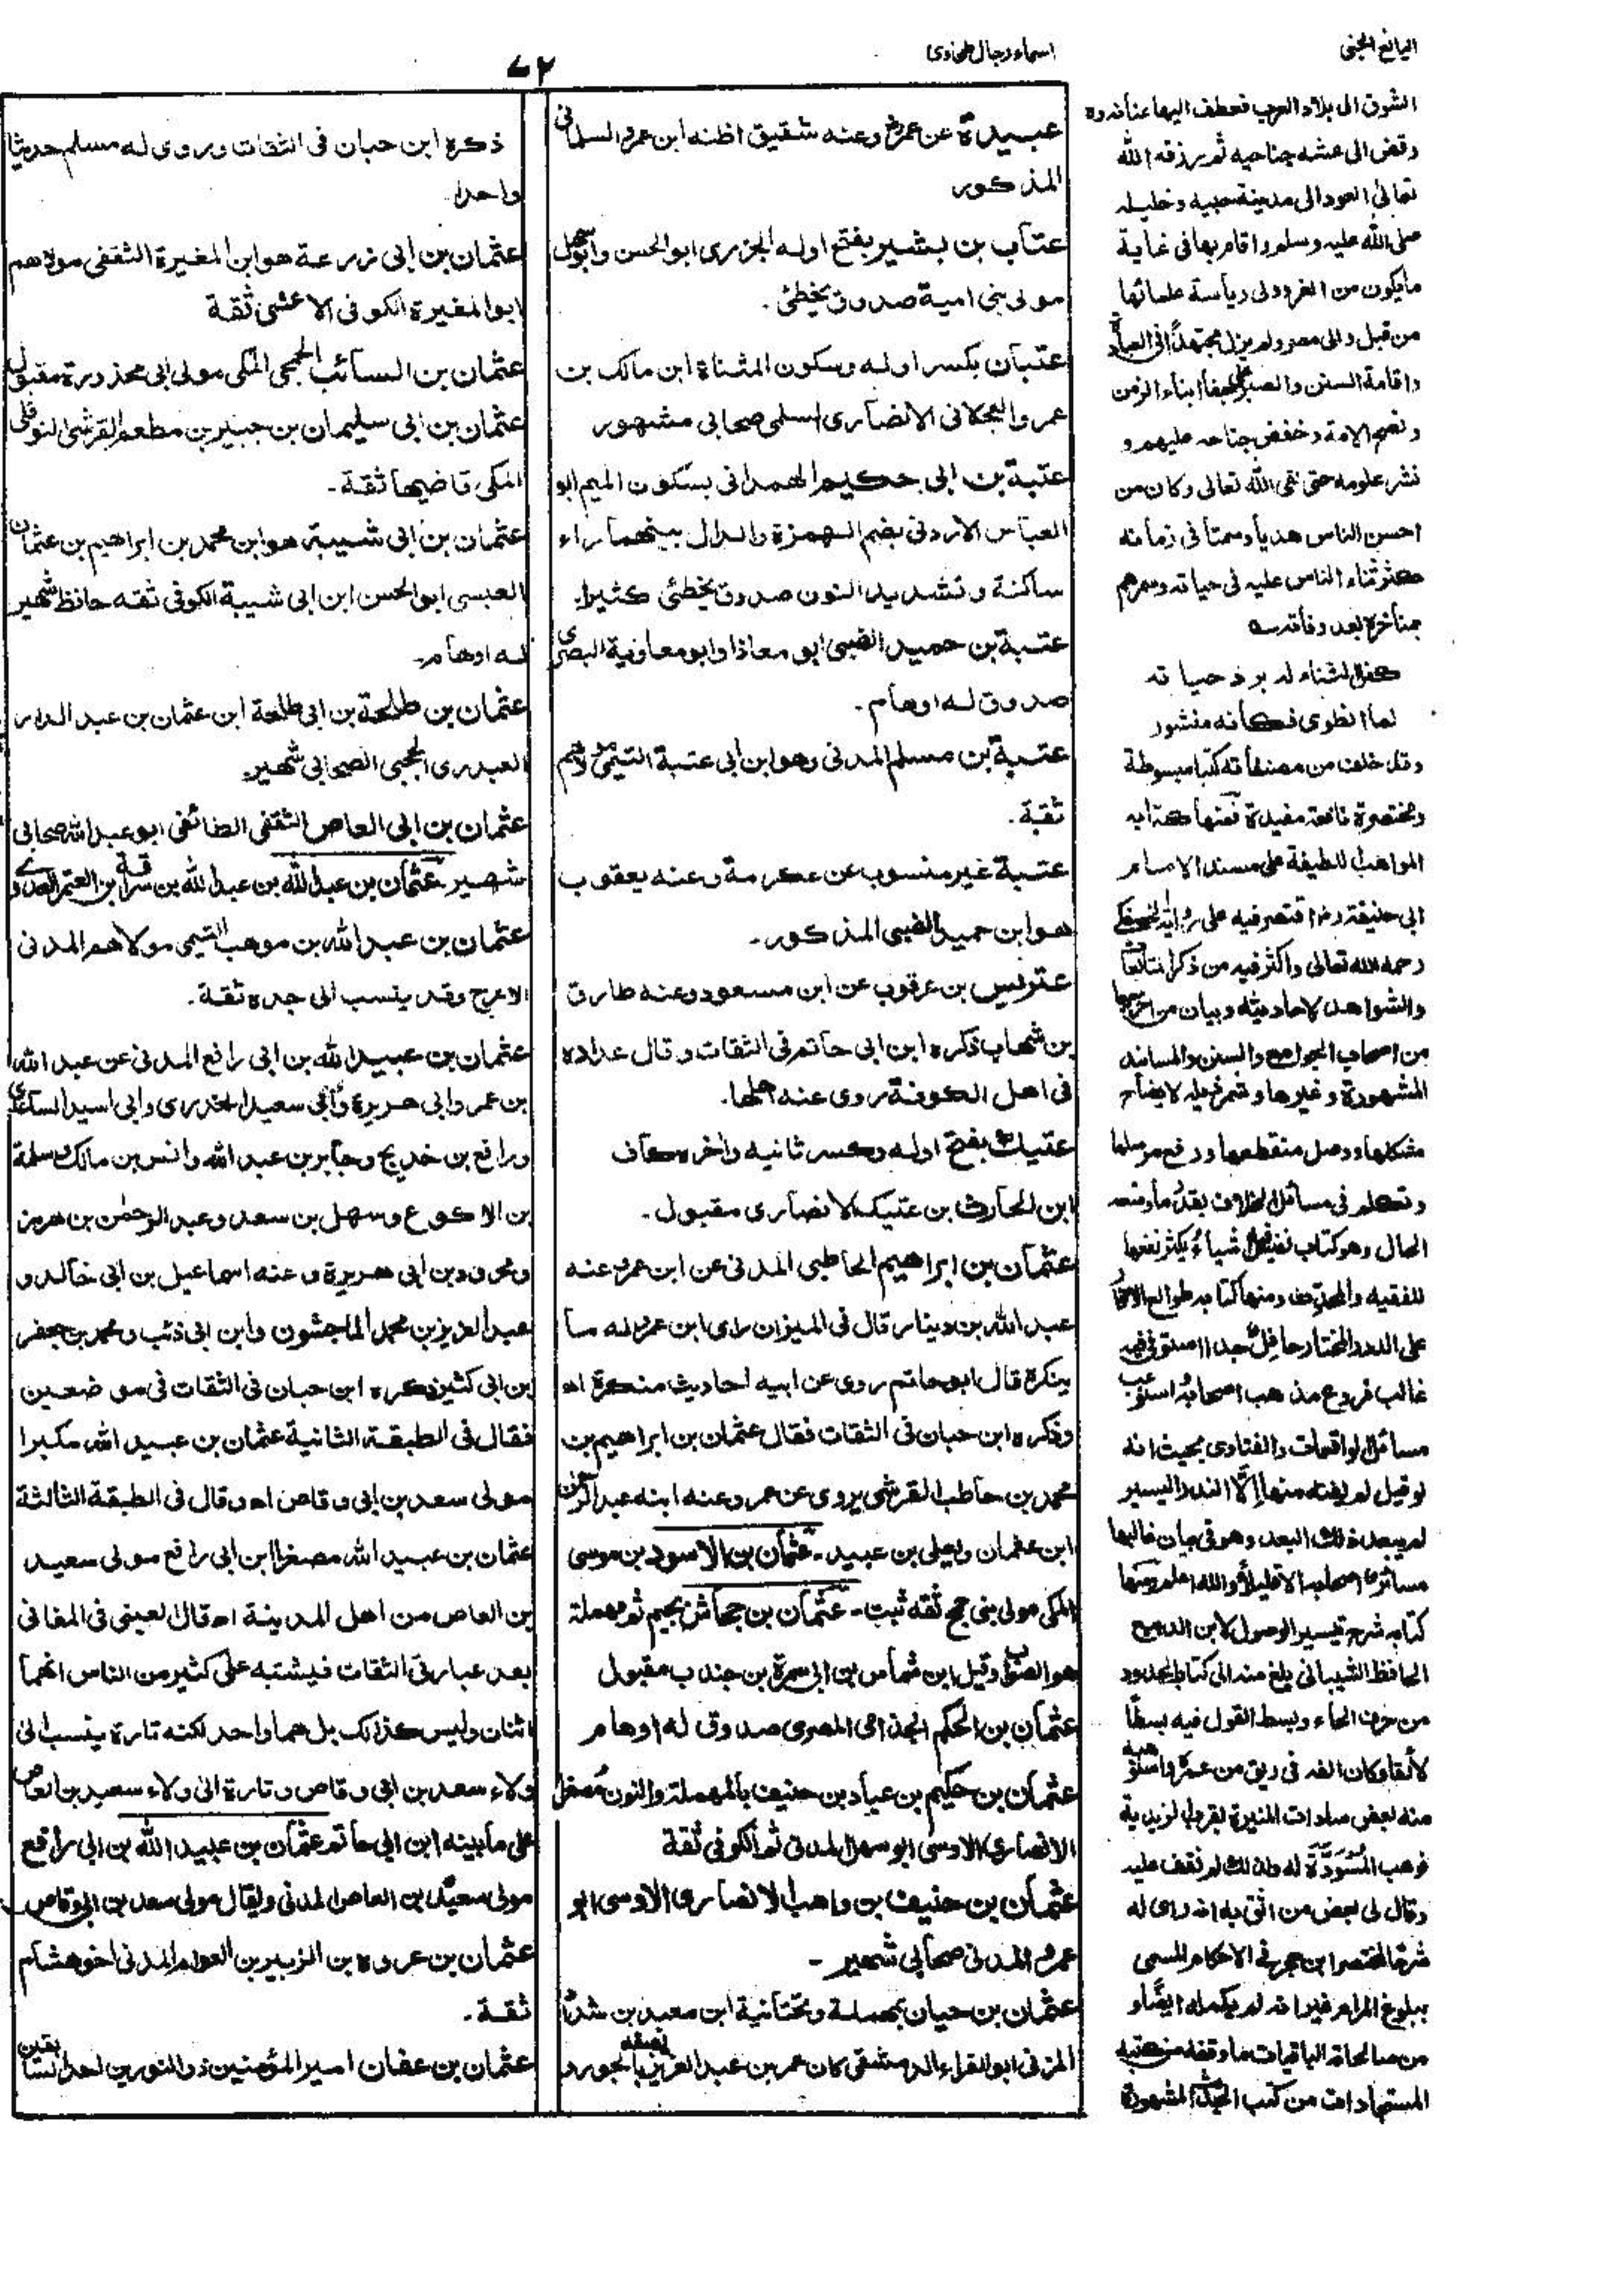 اليانع الجنى
اسماء رجال طحاوى
٧٢
الشوق الى بلاد العرب فعطف اليها عنانه وده
وقض الى عشه جناحيه ثم رزقه الله
تعالى العود الى مدينة حبيبه وخليله
صلى الله عليه وسلم واقام بها فى غاية
مايكون من العز وولى رياسة علمائها
من قبل والى مصر ولم يزل مجتهدا فى العبادة
واقامة السنن والصبر على جفا ابناء الزمن
ونصح الامة وخفض جناحه عليهم و
نشر علومه حتى لقى الله تعالى وكان من
احسن الناس هديا وسمتا فى زمانه
كثر ثناء الناس عليه فى حياته وسرهم
بمآثره بعد وفاته سه
كفل الثناء له برد حياته
لما انطوى فكأنه منشور
وقد خلف من مصنفاته كتبا مبسوطة
ومختصرة نافعة مفيدة فمنها كتابه
المواهب اللطيفة على مسند الامام
ابى حنيفة رض اقتصر فيه على رواية الحصكفى
رحمه الله تعالى واكثر فيه من ذكر المتابعات
والشواهد لاحاديثه وبيان من اخرجها
من اصحاب الجوامع والسنن والمسانيد
المشهورة وغيرها وشمر ذيله لايضاح
مشكلها ووصل منقطعها ورفع مرسلها
وتكلم فى مسائل الخلاف بقدر ما وسعه
الحال وهو كتاب نفيس فى اشياء يكثر نفعها
للفقيه والمحدث ومنها كتابه طوالع الانوار
على الدر المختار حافل جدا استوفى فيه
غالب فروع مذهب اصحابه واستوعب
مسائل الواقعات والفتاوى بحيث انه
لو قيل لم يفته منها الا النذر اليسير
لم يبعد ذلك البعد وهو فى بيان غالبها
مسائرا اصحابه الا قليلا والله اعلم ومنها
كتابه شرح تيسير الوصول لابن الديبع
الحافظ الشيبانى بلغ منه الى كتاب الحدود
من حرف الحاء وبسط القول فيه بسطا
لائقا وكان الفه فى ريق من عمره فاستوهبه
منه بعض سادات المنيرة بقرب الزيدية
فوهب المسودة له ولذلك لم نقف عليه
وقال لى بعض من اثق به انه راى له
شرحا لمختصر ابن حجر فى الاحكام المسمى
ببلوغ المرام غير انه لم يكمله ايضا و
من صالحاته الباقيات ما وقفه من كتبه
المستجادات من كتب الحديث المشهورة
عبيدة عن عمرو وعنه شقيق اظنه ابن عمرو السلمانى
المذكور
عتاب بن بشير بفتح اوله الجزرى ابو الحسن وابو سهل
مولى بنى امية صدوق يخطئ.
عتبان بكسر اوله وسكون المثناة ابن مالك بن
عمرو العجلانى الانصارى السلمى صحابى مشهور
عتبة بن ابى حكيم الهمدانى بسكون الميم ابو
العباس الاردنى بضم الهمزة والدال بينهما راء
ساكنة وتشديد النون صدوق يخطئ كثيرا.
عتبة بن حميد الضبى ابو معاذ او ابو معاوية البصرى
صدوق له اوهام.
عتبة بن مسلم المدنى وهو ابن ابى عتبة التيمى مولاهم
ثقة.
عتبة غير منسوب عن عكرمة وعنه يعقوب
هو ابن حميد الضبى المذكور.
عتريس بن عرقوب عن ابن مسعود وعنه طارق
بن شهاب ذكره ابن ابى حاتم فى الثقات وقال عداده
فى اهل الكوفة روى عنه اهلها.
عتيك بفتح اوله وكسر ثانيه واخره كاف
ابن الحارث بن عتيك الانصارى مقبول.
عثمان بن ابراهيم الحاطبى المدنى عن ابن عمر وعنه
عبد الله بن دينار قال فى الميزان راى ابن عمر له ما
ينكر قال ابو حاتم روى عن ابيه احاديث منكرة اه
وذكره ابن حبان فى الثقات فقال عثمان بن ابراهيم بن
محمد بن حاطب القرشى يروى عن عمر وعنه ابنه عبد الرحمن
ابن عثمان ويعلى بن عبيد. عثمان بن الاسود بن موسى
المكى مولى بنى جمح ثقة ثبت. عثمان بن جحاش بجيم ثم مهملة
هو الصواب وقيل ابن شماس بن ابى سمرة بن جندب مقبول
عثمان بن الحكم الجذامى المصرى صدوق له اوهام
عثمان بن حكيم بن عباد بن حنيف بالمهملة والنون مصغرا
الانصارى الاوسى ابو سهل المدنى ثم الكوفى ثقة
عثمان بن حنيف بن واهب الانصارى الاوسى ابو
عمرو المدنى صحابى شهير.
عثمان بن حيان بمهملة وتحتانية ابن معبد بن شداد
المزنى ابو المغراء الدمشقى كان عمر بن عبد العزيز يصفه بالجور د
ذكره ابن حبان فى الثقات وروى له مسلم حديثا
واحدا.
عثمان بن ابى زرعة هو ابن المغيرة الثقفى مولاهم
ابو المغيرة الكوفى الاعشى ثقة
عثمان بن السائب الجمحى المكى مولى ابى محذورة مقبول
عثمان بن ابى سليمان بن جبير بن مطعم القرشى النوفلى
المكى قاضيها ثقة.
عثمان بن ابى شيبة هو ابن محمد بن ابراهيم بن عثمان
العبسى ابو الحسن ابن ابى شيبة الكوفى ثقه حافظ شهير
له اوهام.
عثمان بن طلحة بن ابى طلحة ابن عثمان بن عبد الدار
العبدرى الحجبى الصحابى شهير
عثمان بن ابى العاص الثقفى الطائفى ابو عبد الله صحابى
شهير. عثمان بن عبد الله بن عبد الله بن سراقة بن المعتمر العدوى
عثمان بن عبد الله بن موهب التيمى مولاهم المدنى
الاعرج وقد ينسب الى جده ثقة.
عثمان بن عبيد الله بن ابى رافع المدنى عن عبد الله
بن عمر وابى هريرة وابى سعيد الخدرى وابى اسيد الساعدى
ورافع بن خديج وجابر بن عبد الله وانس بن مالك وسلمة
بن الاكوع وسهل بن سعد وعبد الرحمن بن هرمز
ومحرر بن ابى هريرة وعنه اسماعيل بن ابى خالد و
عبد العزيز بن محمد الماجشون وابن ابى ذئب ومحمد بن جعفر
بن ابى كثير ذكره ابن حبان فى الثقات فى موضعين
فقال فى الطبقة الثانية عثمان بن عبيد الله مكبرا
مولى سعد بن ابى وقاص اه وقال فى الطبقة الثالثة
عثمان بن عبيد الله مصغرا ابن ابى رافع مولى سعيد
بن العاص من اهل المدينة اه قال العينى فى المغانى
بعد عبارتى الثقات فيشتبه على كثير من الناس انهما
اثنان وليس كذلك بل هما واحد لكنه تارة ينسب الى
ولاء سعد بن ابى وقاص وتارة الى ولاء سعيد بن العاص
على ما بينه ابن ابى حاتم عثمان بن عبيد الله بن ابى رافع
مولى سعيد بن العاص المدنى ويقال مولى سعد بن ابى وقاص
عثمان بن عروة بن الزبير بن العوام المدنى اخو هشام
ثقة.
عثمان بن عفان امير المؤمنين ذو النورين احد السابقين